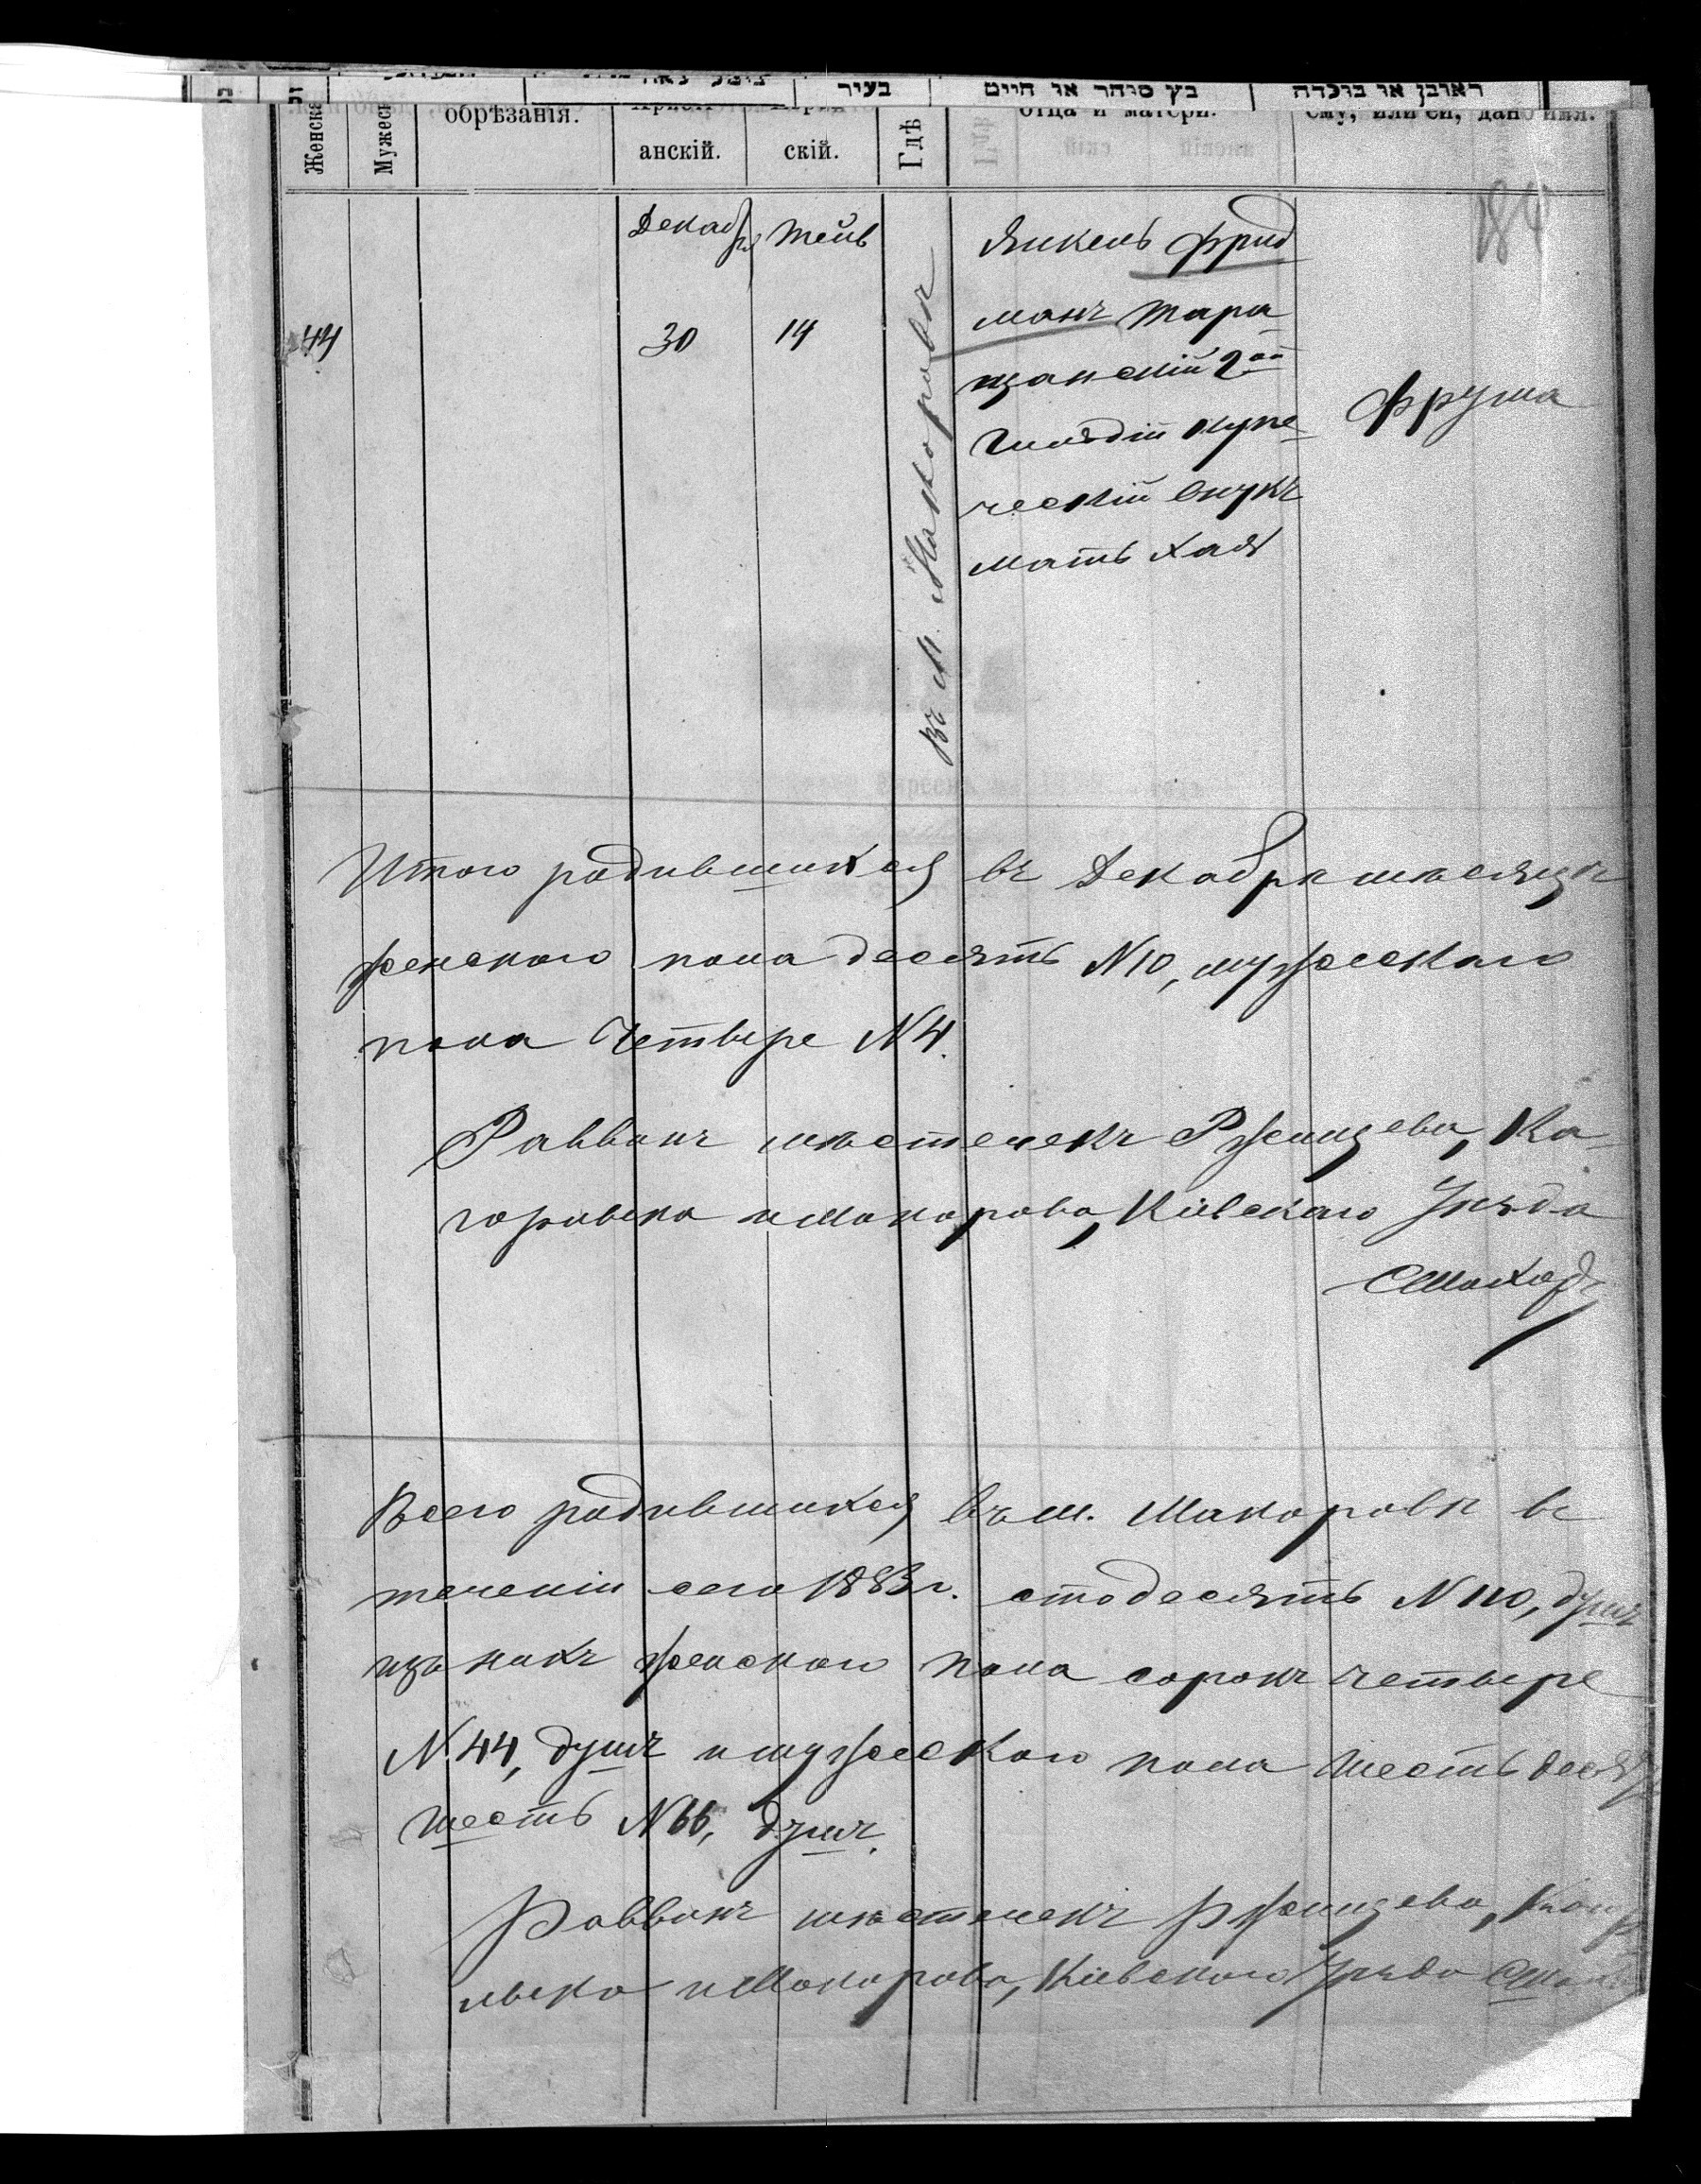 בעיר
בץ סוחר או חיים
ראובן או בולדה
Женска
Мужеск
обрѣзанія.
анскій.
скій.
Гдѣ
отца и матери.
ему, или ей, дано имя.
184
Декабр
Тейв
44
30
14
въ М. Макаровѣ
Янкель Фрид
манъ Тара
щанскій 2ой
Гильдіи купе
ческій внукъ
мать Хая
Фрума
Итого родившихся въ Декабрѣ мѣсяцѣ
женскаго пола десять N 10, мужескаго
пола Четыре N 4.
Раввинъ мѣстечекъ Ржищева, Ка
горлыка и Макарова, Кіевскаго Уѣзда
Всего родившихся въ м. Макаровѣ въ
теченіи сего 1883 г. сто десять N 110, душъ
изъ нихъ женскаго пола сорокъ четыре
N 44, душъ и мужескаго пола шестьдесят
шесть N 66, душъ.
Раввинъ мѣстечекъ Ржищева, Кагор
лыка и Макарова, Кіевскаго Уѣзда